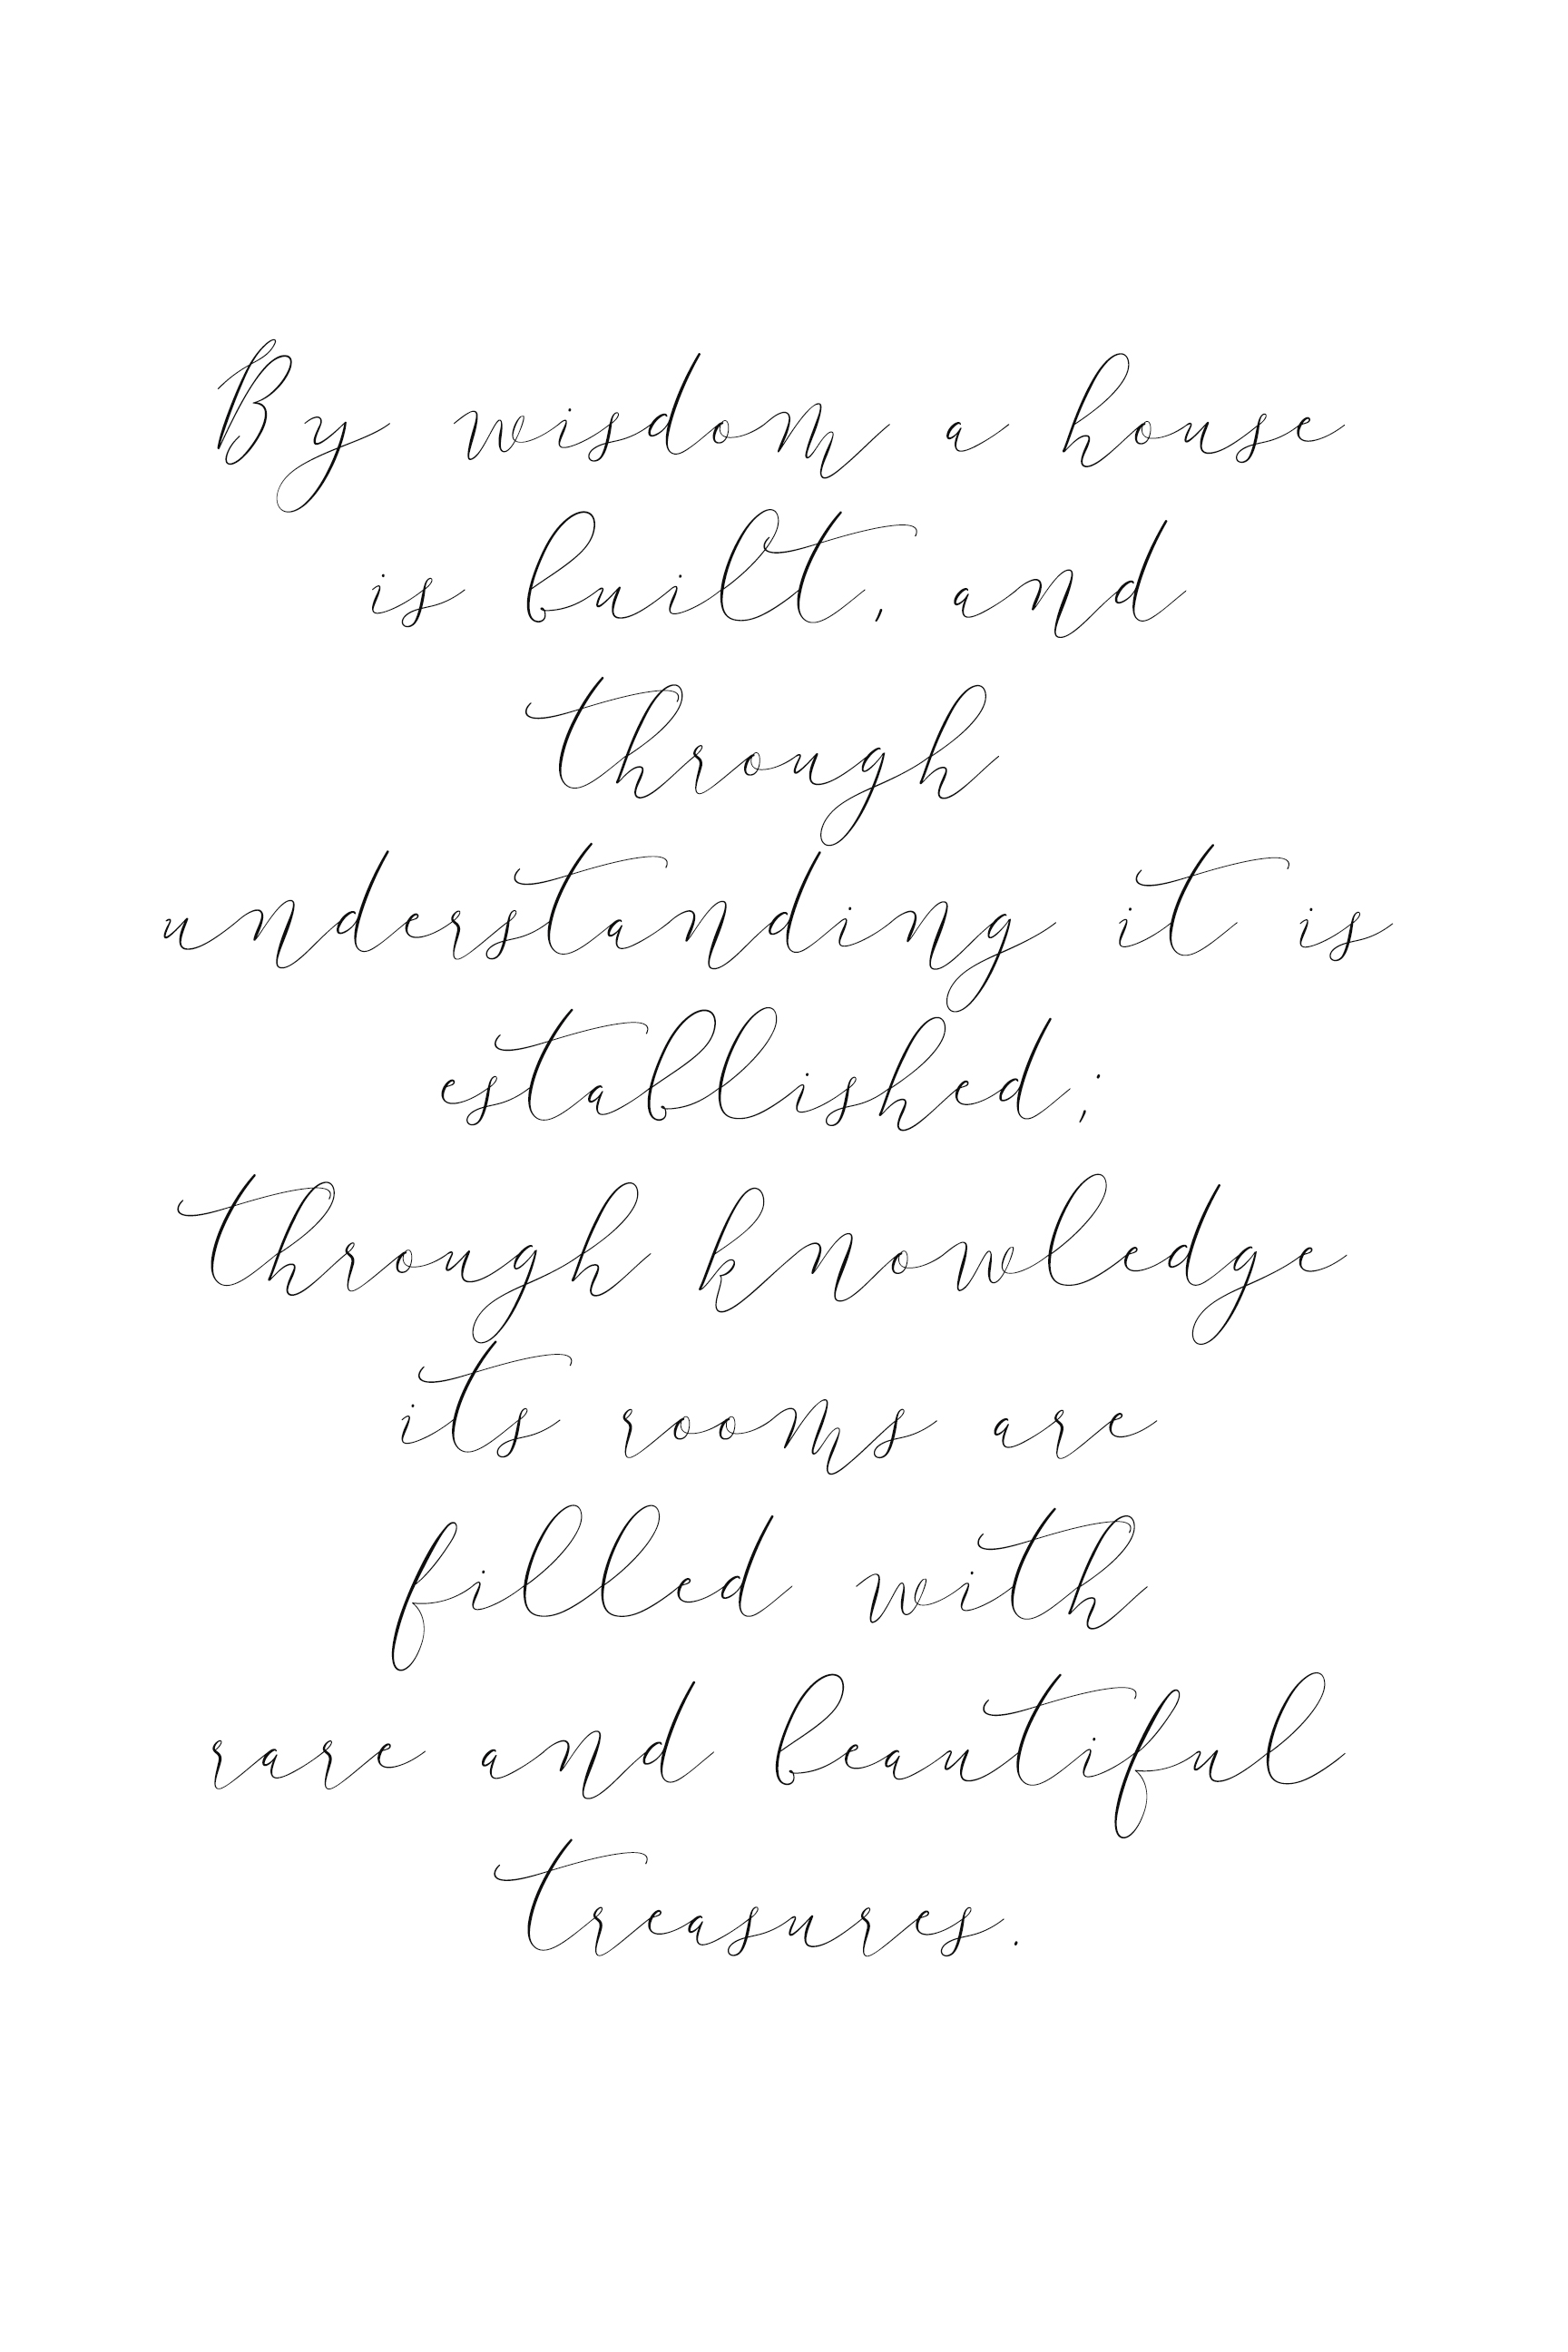 By wisdom a house
is built, and
through
understanding it is
established;
through knowledge
its rooms are
filled with
rare and beautiful
treasures.